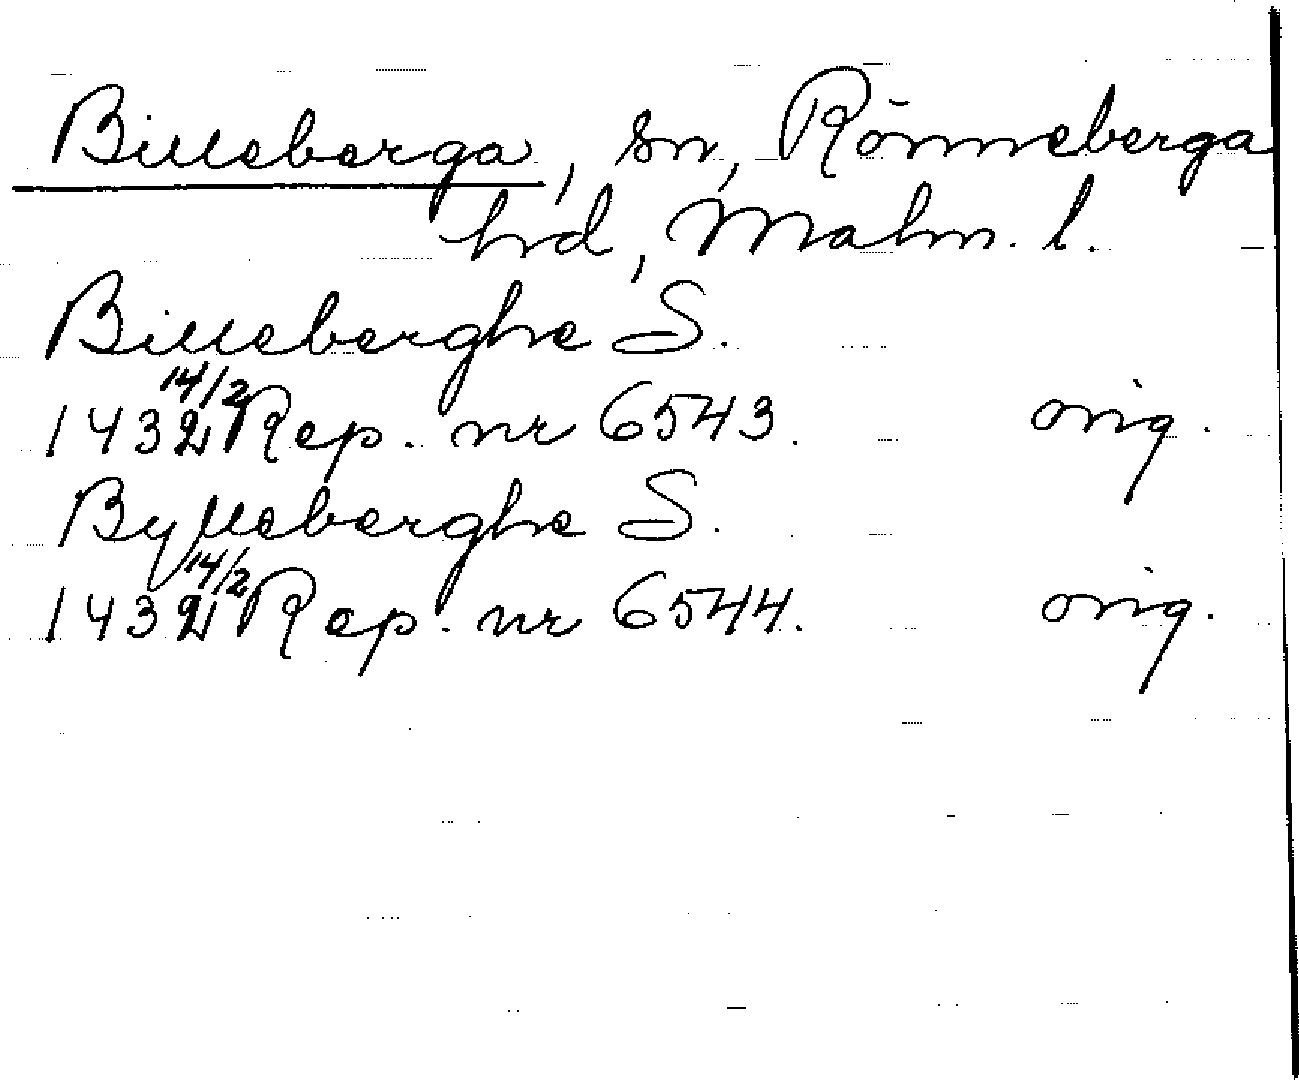 Billeberga, sn, Rönneberga
hd, Malm. l.
Billeberghe S.
1432 14/2 Rep. nr 6543. orig.
Bylleberghe S.
1432 14/2 Rep. nr 6544. orig.